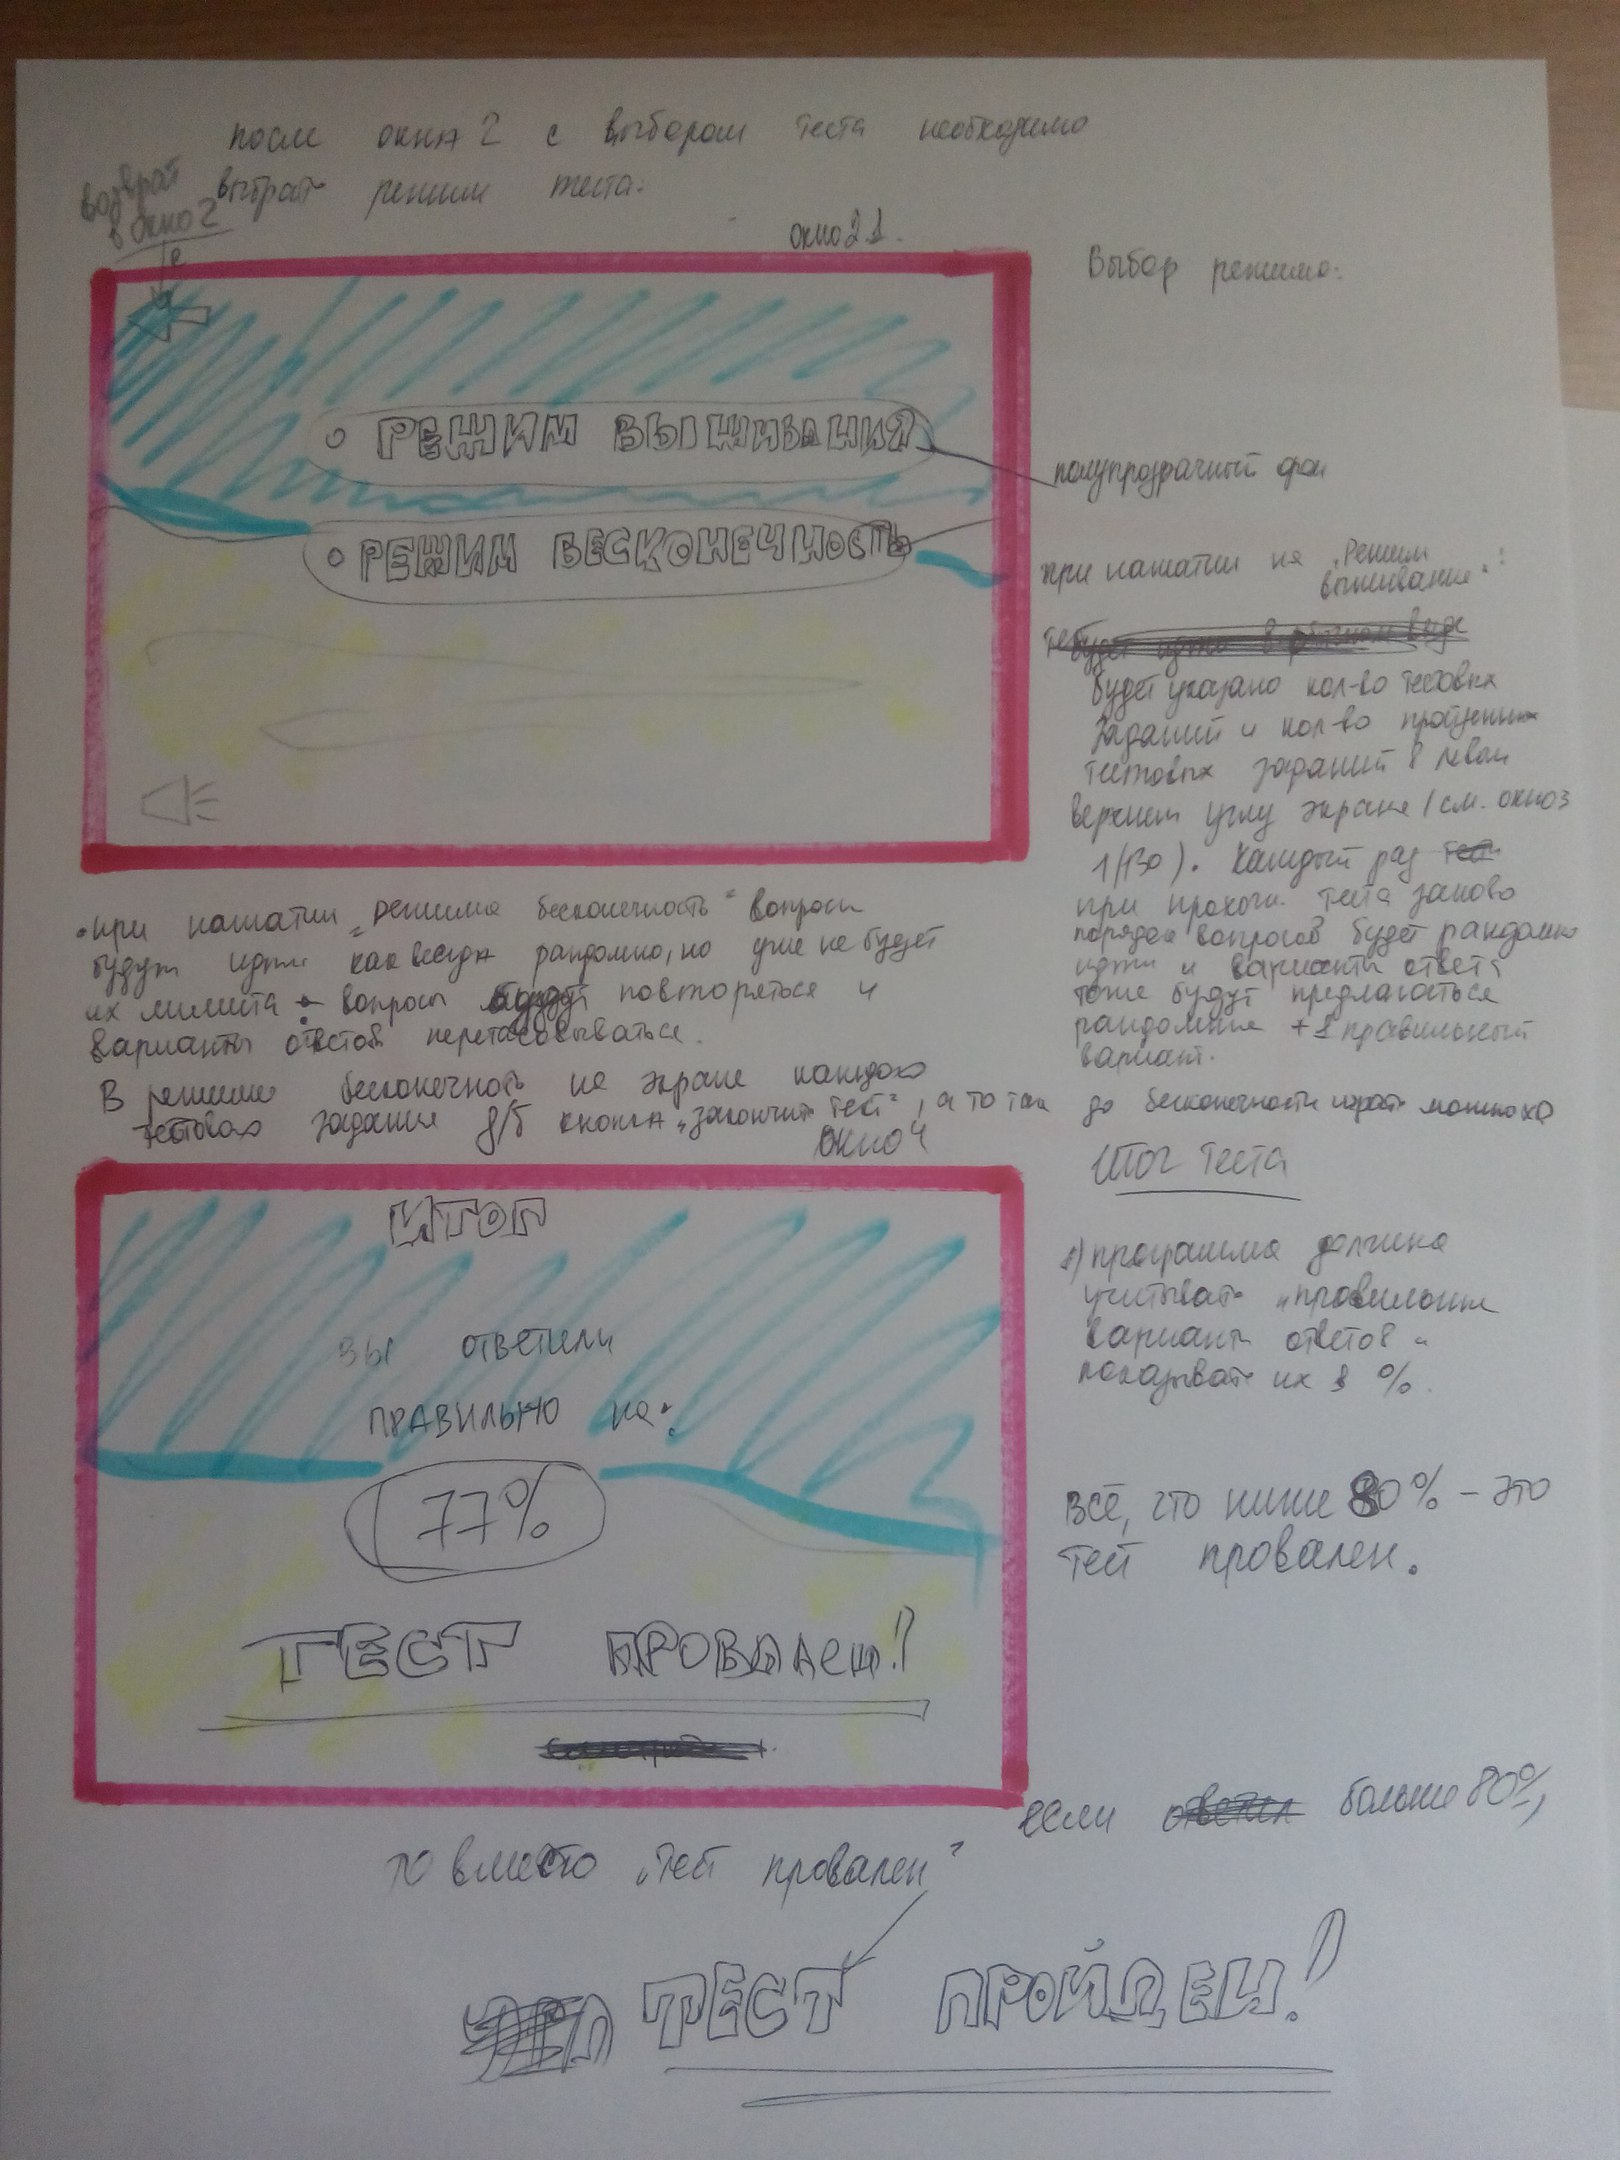 после окна 2 с выбором теста необходимо
выбрать режим теста:
возврат
в окно 2
окно 2.1.
Выбор режима:
• РЕЖИМ ВЫЖИВАНИЯ
полупрозрачный фон
• РЕЖИМ БЕСКОНЕЧНОСТЬ
при нажатии на „Режим
выживание":
будет указано кол-во тестовых
заданий и кол-во пройденных
тестовых заданий в левом
верхнем углу экрана (см. окно 3
1/130). Каждый раз
при прохожд. теста заново
порядок вопросов будет рандомно
идти и варианты ответа
тоже будут предлагаться
рандомные + 1 правильный
вариант.
• при нажатии „режима бесконечность" вопросы
будут идти как всегда рандомно, но уже не будет
их лимита - вопросы будут повторяться и
варианты ответов перетасовываться.
В режиме бесконечность на экране каждого
тестового задания д/б кнопка „закончить тест", а то так до бесконечности играть можно xD
окно 4
Итог теста
ИТОГ
ВЫ ОТВЕТИЛИ
ПРАВИЛЬНО на:
77%
ТЕСТ ПРОВАЛЕН!
1) программа должна
учитывать „правильные
варианты ответов"
показывать их в %.
ВСЁ, что ниже 80% - это
тест провален.
если больше 80%,
то вместо „тест провален"
ТЕСТ ПРОЙДЕН!